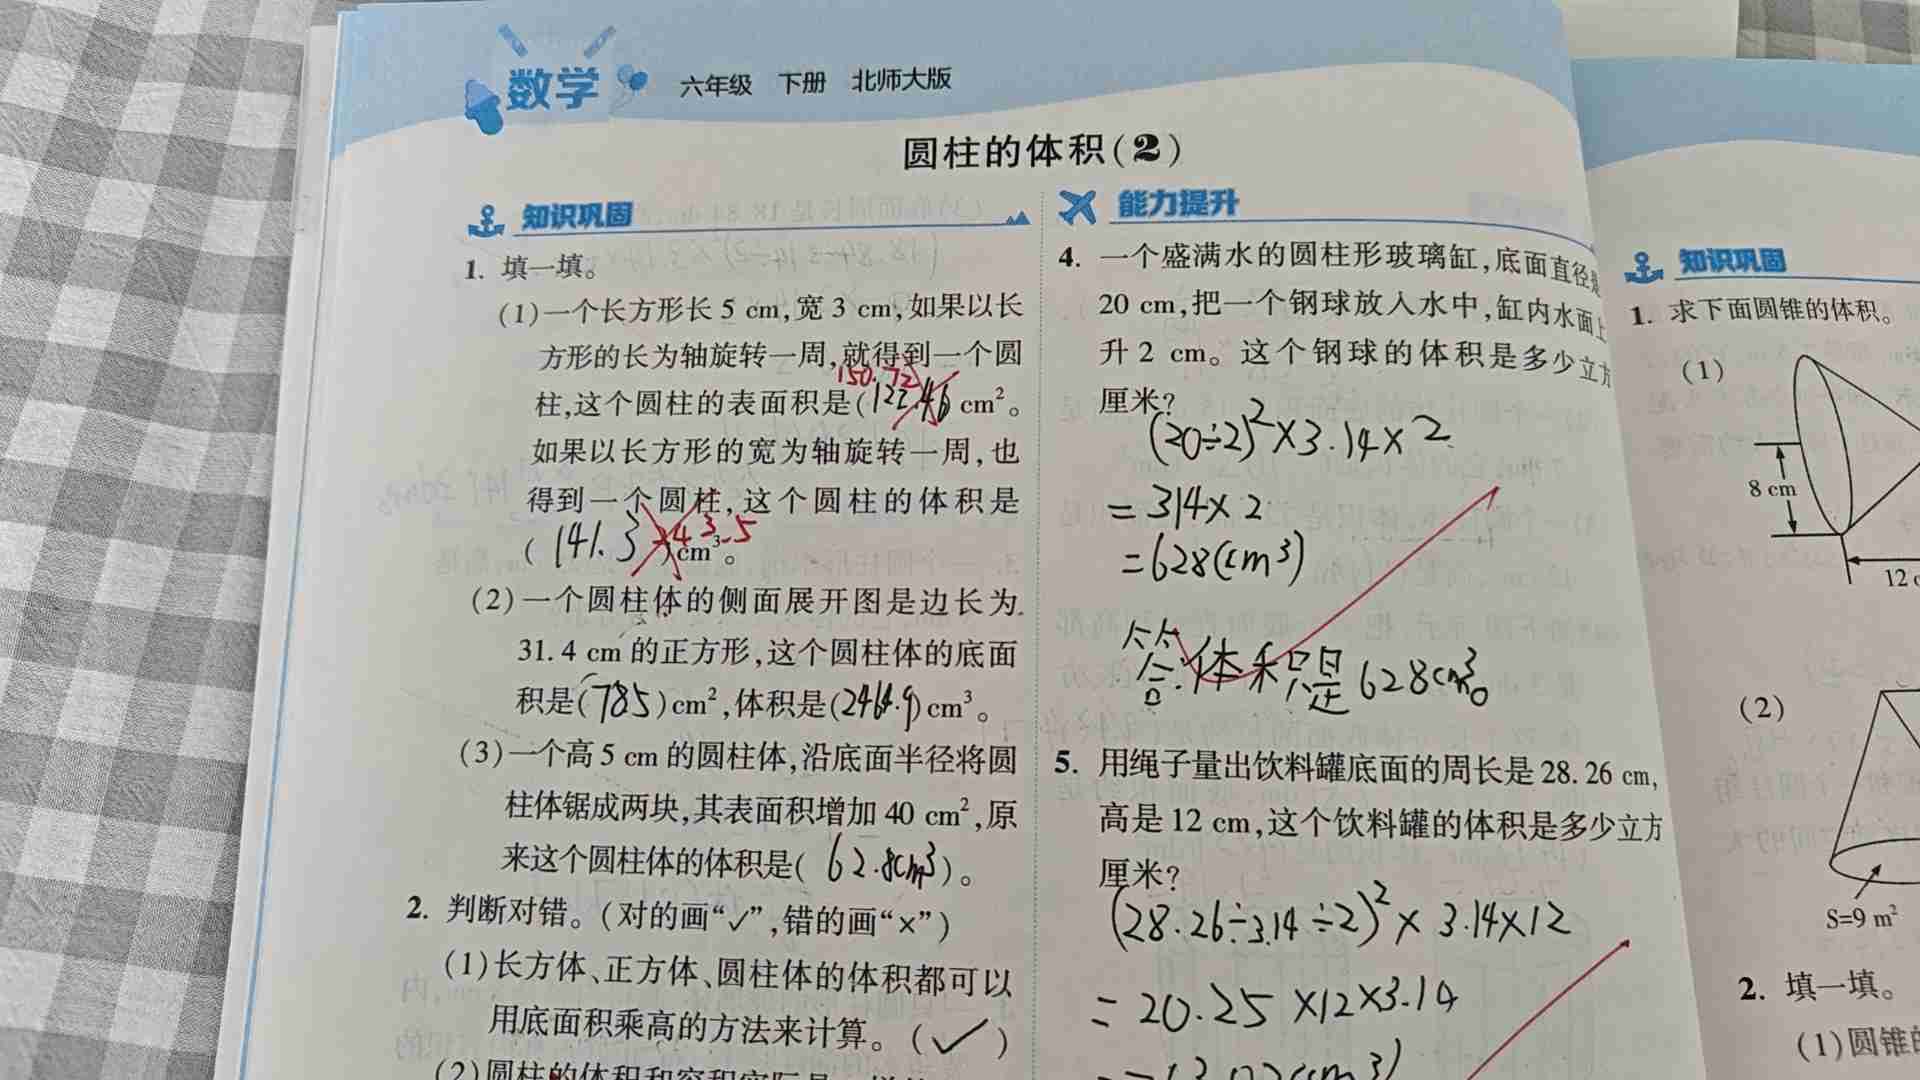 数学 六年级 下册 北师大版
圆柱的体积(2)
知识巩固
1. 填一填。
(1)一个长方形长 5 cm,宽 3 cm,如果以长
方形的长为轴旋转一周,就得到一个圆
150.72
柱,这个圆柱的表面积是(122.46 cm²。
如果以长方形的宽为轴旋转一周,也
得到一个圆柱,这个圆柱的体积是
(141.3)cm³。
(2)一个圆柱体的侧面展开图是边长为
31.4 cm 的正方形,这个圆柱体的底面
积是(785)cm²,体积是(2464.9)cm³。
(3)一个高 5 cm 的圆柱体,沿底面半径将圆
柱体锯成两块,其表面积增加 40 cm²,原
来这个圆柱体的体积是(62.8cm³)。
2. 判断对错。(对的画“✓”,错的画“×”)
(1)长方体、正方体、圆柱体的体积都可以
用底面积乘高的方法来计算。(✓)
能力提升
4. 一个盛满水的圆柱形玻璃缸,底面直径是
20 cm,把一个钢球放入水中,缸内水面上
升 2 cm。这个钢球的体积是多少立方
厘米?
(20÷2)²×3.14×2
=314×2
=628(cm³)
答:体积是628cm³。
5. 用绳子量出饮料罐底面的周长是 28.26 cm,
高是 12 cm,这个饮料罐的体积是多少立方
厘米?
(28.26÷3.14÷2)²×3.14×12
=20.25×12×3.14
知识巩固
1. 求下面圆锥的体积。
(1)
8 cm
12
(2)
S=9 m²
2. 填一填。
(1)圆锥的